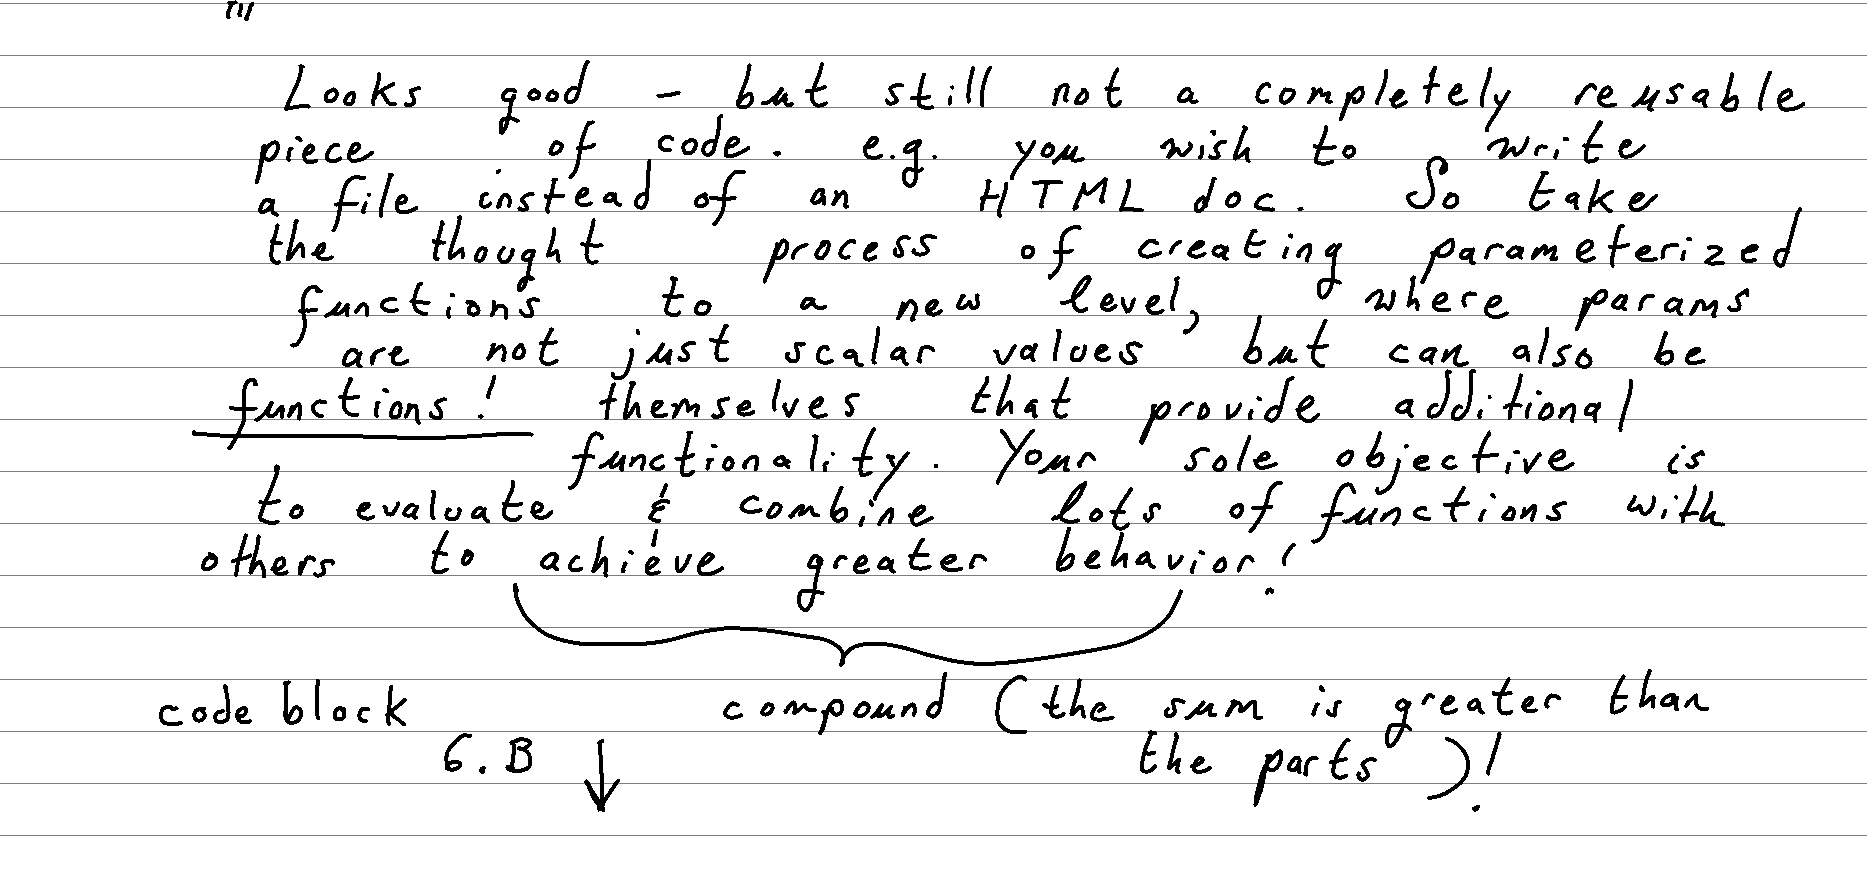 Looks good - but still not a completely reusable
piece of code. e.g. you wish to write
a file instead of an HTML doc. So take
the thought process of creating parameterized
functions to a new level, where params
are not just scalar values but can also be
functions! themselves that provide additional
functionality. Your sole objective is
to evaluate & combine lots of functions with
others to achieve greater behavior!
code block compound (the sum is greater than
6.B ↓ the parts)!